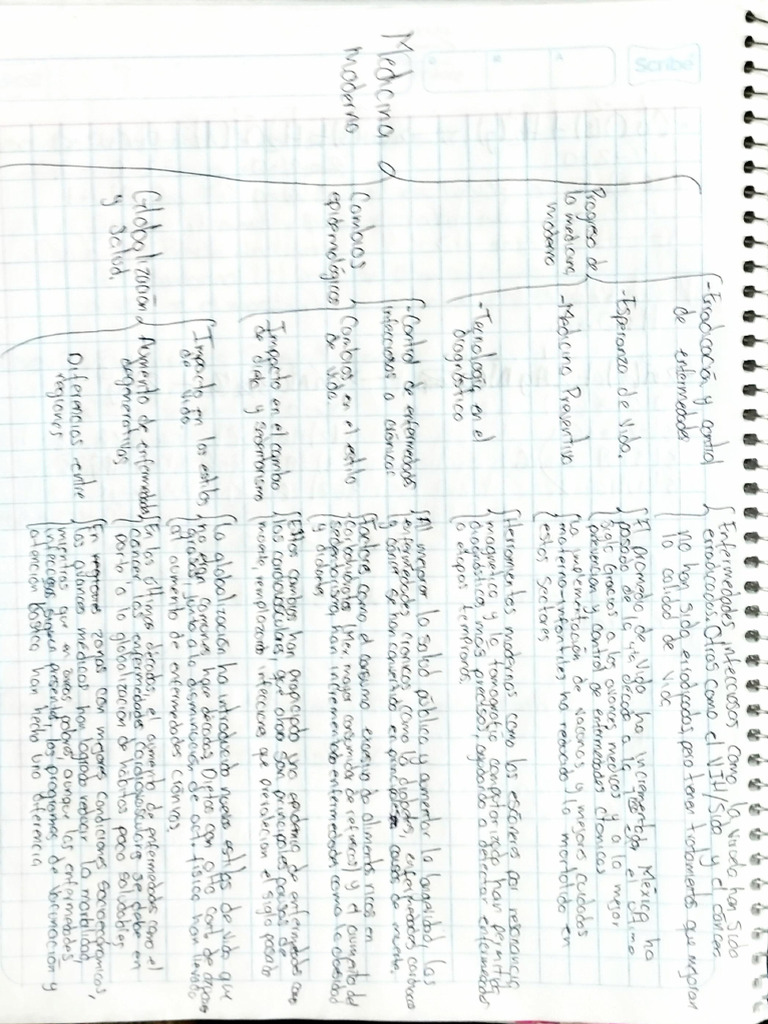 Scribe
Medicina
moderna
Progreso de
la medicina
moderna
-Erradicación y control
de enfermedades
Enfermedades infecciosas como la viruela han sido
erradicadas. Otras como el VIH/Sida y el cáncer
no han sido erradicadas, pero tienen tratamientos que mejoran
la calidad de vida
-Esperanza de vida.
El promedio de vida ha incrementado, México ha
pasado de la 4ta década a la 7ma en el último
siglo Gracias a los avances médicos y a la mejor
prevencion y control de enfermedades cronicas
-Medicina Preventiva
La implementación de vacunas y mejores cuidados
materno-infantiles ha reducido la mortalidad en
estos sectores
-Tecnología en el
diagnóstico
Herramientas modernas como los escáneres por resonancia
magnetica y la tomografía computarizada han permitido
diagnósticos más precisos, ayudando a detectar enfermedades
a etapas tempranas.
Cambios
epidemológicos
-Control de enfermedades
infecciosas a crónicas
Al mejorar la salud pública y aumentar la longevidad, las
enfermedades cronicas como la diabetes, enfermedades cardiacas
y cáncer se han convertido en principales causas de muerte.
Cambios en el estilo
de vida.
Factores como el consumo excesivo de alimentos ricos en
carbohidratos (Mex mayor consumidor de refrescos) y el aumento del
sedentarismo, han incrementado enfermedades como la obesidad
Impacto en el cambio
de dieta y sedentarismo
Estos cambios han propiciado una epidemia de enfermedades como
las cardiovasculares, que ahora son principales causas de
muerte, remplazando infecciones que prevalecían el siglo pasado
Globalización
y salud.
Impacto en los estilos
de vida
La globalización ha introducido nuevos estilos de vida que
no eran comunes hace décadas, Dietas con alto cont. de
grasas junto a la disminución de act. física han llevado
al aumento de enfermedades crónicas.
Aumento de enfermedades
degenerativas
En las últimas décadas, el aumento de enfermedades como el
cáncer las enfermedades cardiovasculares se debe en
parte a la globalización de hábitos poco saludables
Diferencias entre
regiones
En zonas con mejores condiciones socioeconomicas,
los avances médicos han logrado reducir la mortalidad,
mientras que en áreas pobres, aunque las enfermedades
infecciosas siguen presentes, los programas de vacunación y
atención básica han hecho una diferencia